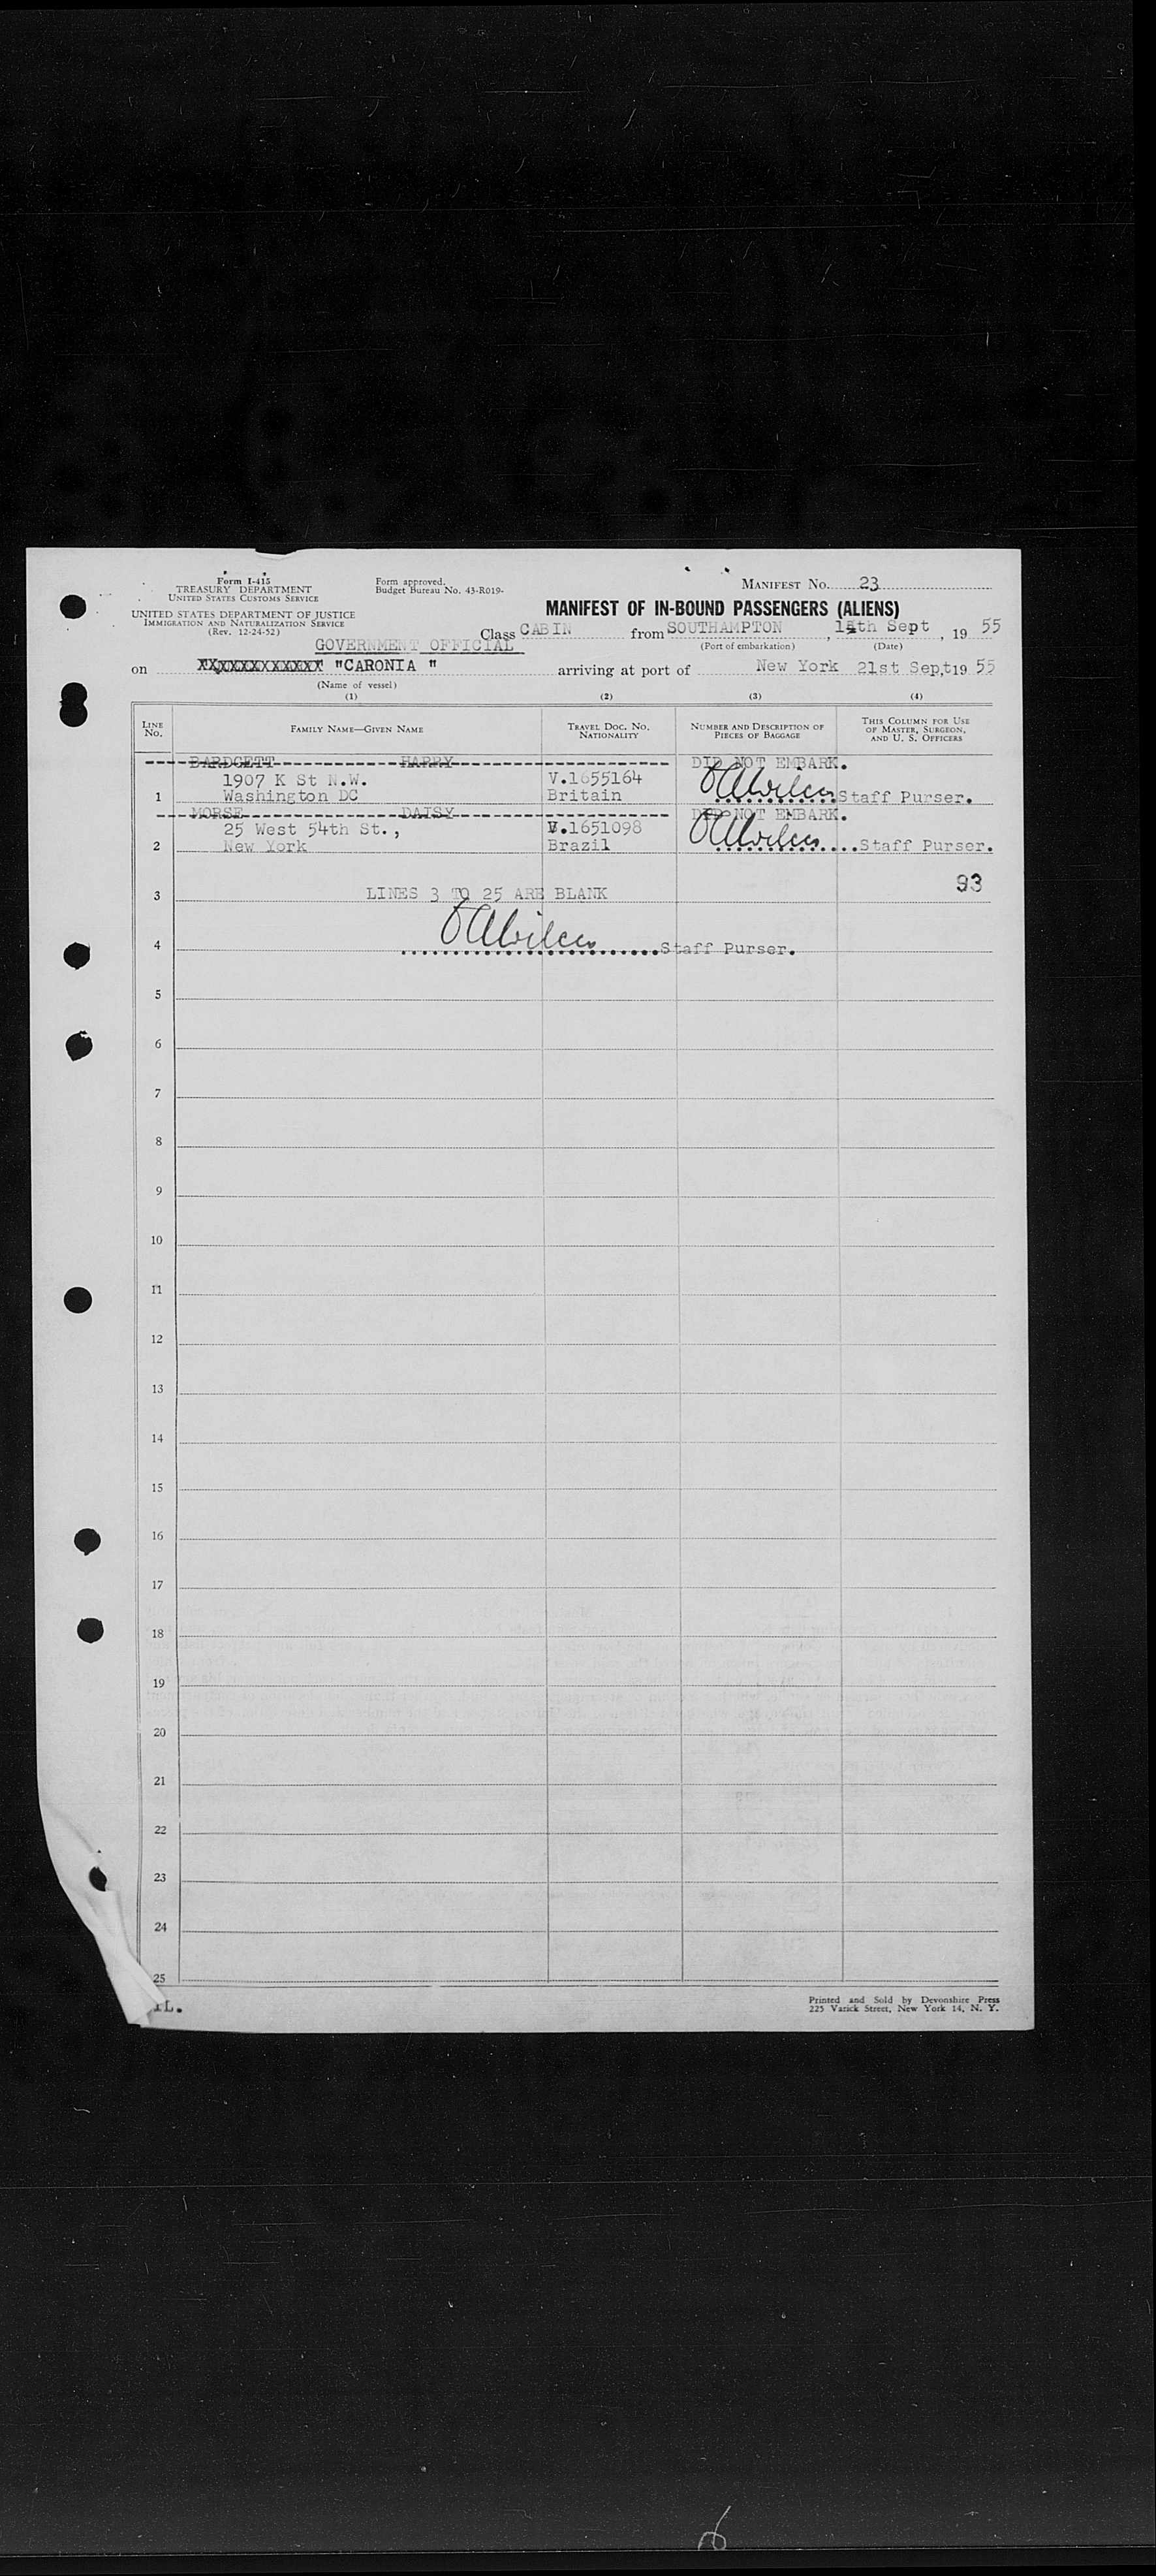 Form I-415
TREASURY DEPARTMENT
UNITED STATES CUSTOMS SERVICE
UNITED STATES DEPARTMENT OF JUSTICE
IMMIGRATION AND NATURALIZATION SERVICE
(Rev. 12-24-52)
Form approved.
Budget Bureau No. 43-R019-
MANIFEST NO. 23
MANIFEST OF IN-BOUND PASSENGERS (ALIENS)
GOVERNMENT OFFICIAL
Class CABIN from SOUTHAMPTON, 15th Sept, 19 55
(Port of embarkation) (Date)
on "CARONIA " arriving at port of New York 21st Sept,19 55
(Name of vessel)
(1) (2) (3) (4)
LINE No. FAMILY NAME—GIVEN NAME TRAVEL DOC. NO. NATIONALITY NUMBER AND DESCRIPTION OF PIECES OF BAGGAGE THIS COLUMN FOR USE OF MASTER, SURGEON, AND U. S. OFFICERS
BARDGETT HARRY DID NOT EMBARK.
1907 K St N.W. V.1655164
1 Washington DC Britain Staff Purser.
MORSE DAISY DID NOT EMBARK.
25 West 54th St., V.1651098
2 New York Brazil Staff Purser.
93
3 LINES 3 TO 25 ARE BLANK
4 Staff Purser.
5
6
7
8
9
10
11
12
13
14
15
16
17
18
19
20
21
22
23
24
25
Printed and Sold by Devonshire Press
225 Varick Street, New York 14, N. Y.